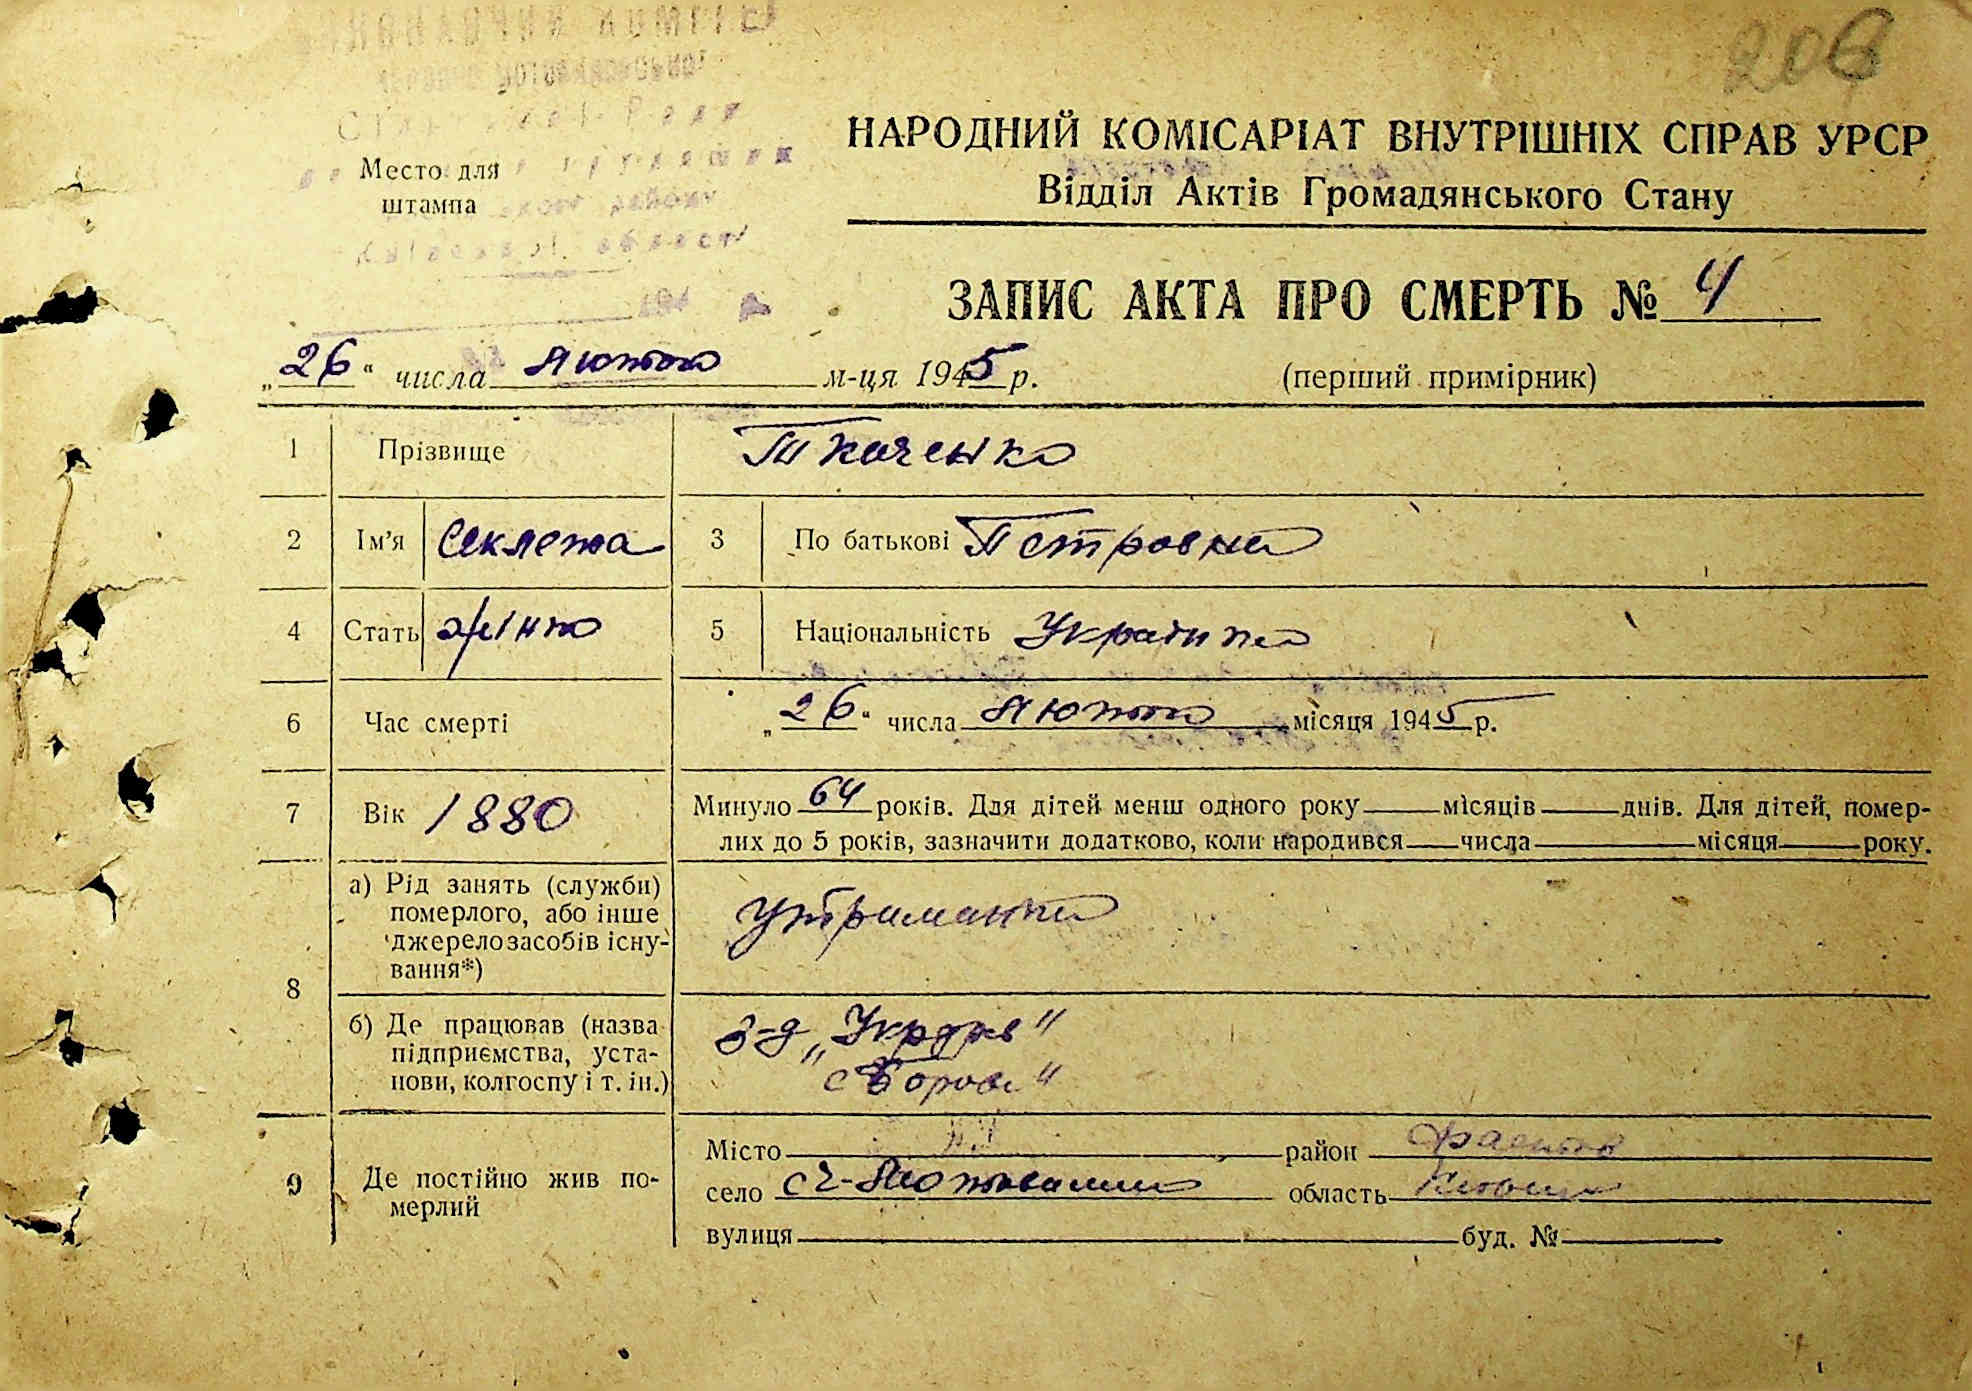 206
Место для
штампа
НАРОДНИЙ КОМІСАРІАТ ВНУТРІШНІХ СПРАВ УРСР
Відділ Актів Громадянського Стану
ЗАПИС АКТА ПРО СМЕРТЬ № 4
„26“ числа лютого м-ця 1945 р. (перший примірник)
1 Прізвище Ткаченко
2 Ім’я Секлета 3 По батькові Петровна
4 Стать жінка 5 Національність Українка
6 Час смерті „26“ числа лютого місяця 1945 р.
7 Вік 1880 Минуло 64 років. Для дітей менш одного року місяців днів. Для дітей, помер-
лих до 5 років, зазначити додатково, коли народився числа місяця року.
8 а) Рід занять (служби)
померлого, або інше
джерело засобів існу-
вання*)
утриманка
б) Де працював (назва
підприємства, уста-
нови, колгоспу і т. ін.)
З-д „
"
9 Де постійно жив по-
мерлий
Місто район
село область
вулиця буд. №